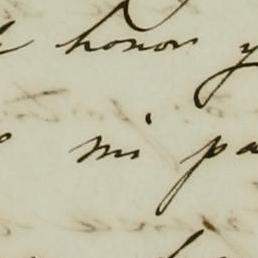 honor y
mi pa